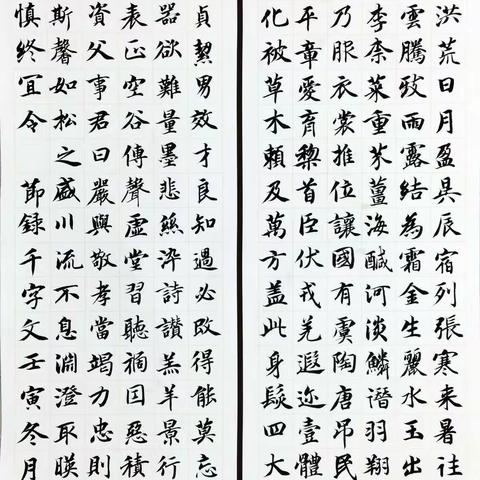 洪荒日月盈昃辰宿列張寒来暑往
雲騰致雨露結為霜金生麗水玉出
李柰菜重芥薑海鹹河淡鱗潛羽翔
乃服衣裳推位讓國有虞陶唐弔民
平章愛育黎首臣伏戎羌遐迩壹體
化被草木賴及萬方盖此身髮四大
貞絜男效才良知過必改得能莫忘
器欲難量墨悲絲染詩讚羔羊景行
表正空谷傳聲虛堂習聽禍因惡積
資父事君曰嚴與敬孝當竭力忠則
斯馨如松之盛川流不息淵澄取暎
慎終宜令 節録千字文壬寅冬月